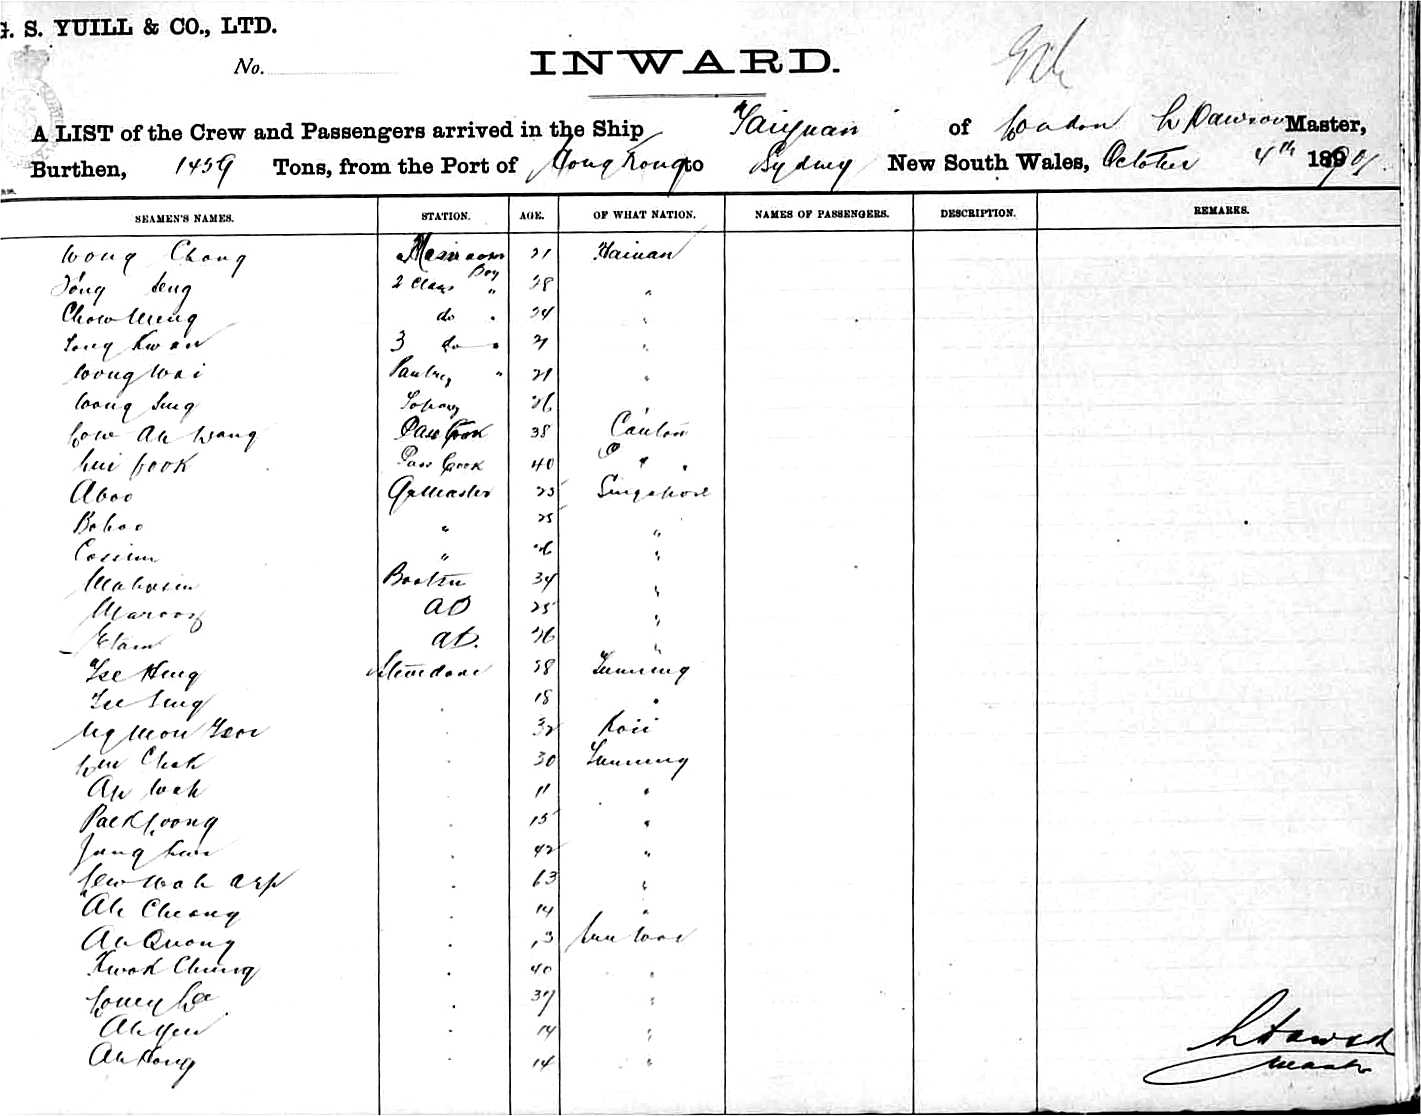 G. S. YUILL & CO., LTD.
No.
INWARD.
A LIST of the Crew and Passengers arrived in the Ship Taiyuan of London L Dawson Master,
Burthen, 1459 Tons, from the Port of Hong Kong to Sydney New South Wales, October 4th 1901.
SEAMEN'S NAMES. STATION. AGE. OF WHAT NATION. NAMES OF PASSENGERS. DESCRIPTION. REMARKS.
Wong Chong Messroom Boy 21 Hainan
Tong Seng 2 Class " 28 "
Chow Ming do " 24 "
Tong Kwan 3 do " 21 "
Wong Wai Pantry " 21 "
Wong Sing 26 "
Low Ah Wang Cook 38 Canton
Lui Fook Pass Cook 40 " "
Aboo Qr Master 25 Singapore
Bohoo " 25 "
Cossim " 26 "
Mahasim Boatsn 34 "
AB 25 "
Etam AB. 26 "
Tse Hing Stevedore 28 Sunning
Tse Sing 18 "
Ng Mon 32
Chak 30 Sunning
Ah Wah 11 "
Pack Foong 15 "
42 "
Wah 63 "
Ah Cheong 14 "
Ah Quong 13
Kwok Chung 40 "
37 "
Ah Yew 14 "
Ah Hong 14 "
L Dawson
Master